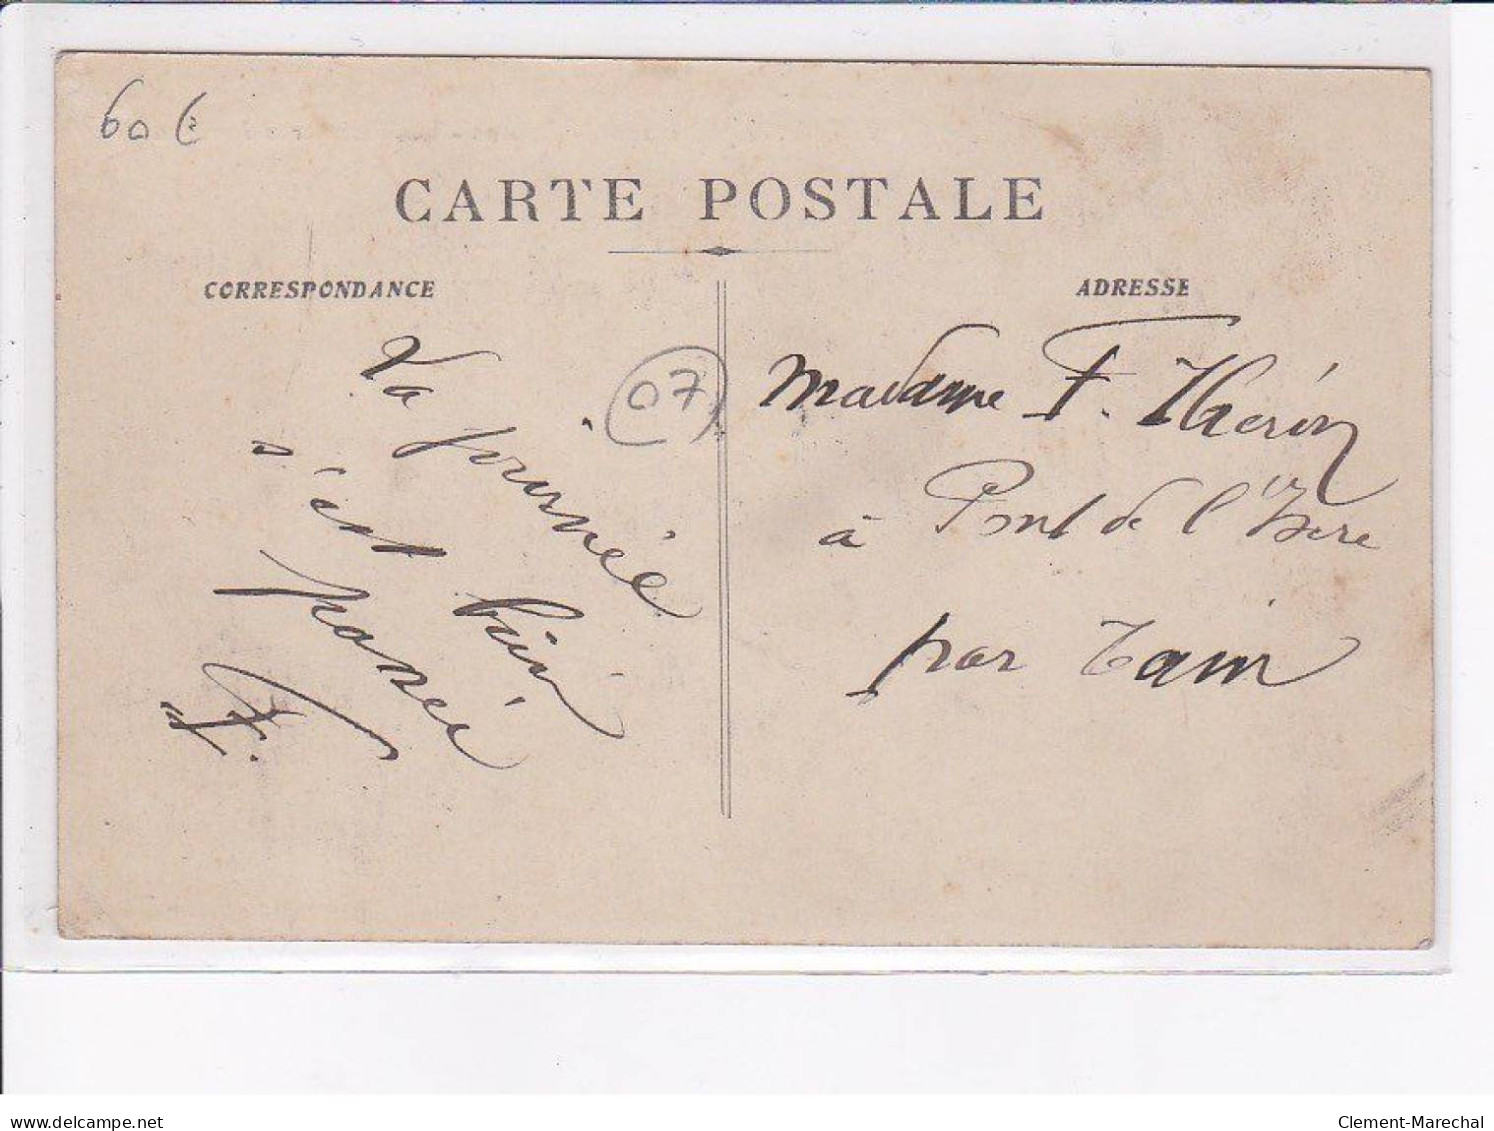 60 €
CARTE POSTALE
CORRESPONDANCE
La journée
s'est bien
passée
F.
07
ADRESSE
Madame F. Théron
à Pont de l'Isère
par Tain
delcampe.net
Clement-Marechal